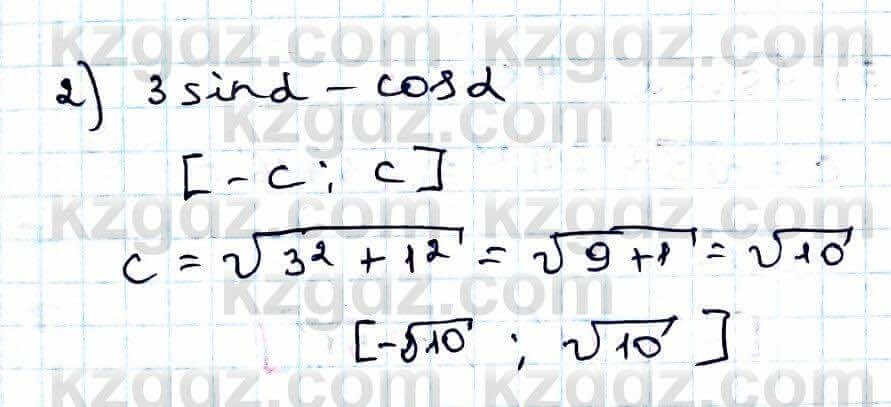 kzgdz.com kzgdz.com
2) 3 sin α - cos α
kzgdz.com
[-c ; c]
kzgdz.com kzgdz.com
c = √(3² + 1²) = √(9 + 1) = √10
kzgdz.com
[-√10 ; √10]
kzgdz.com kzgdz.com